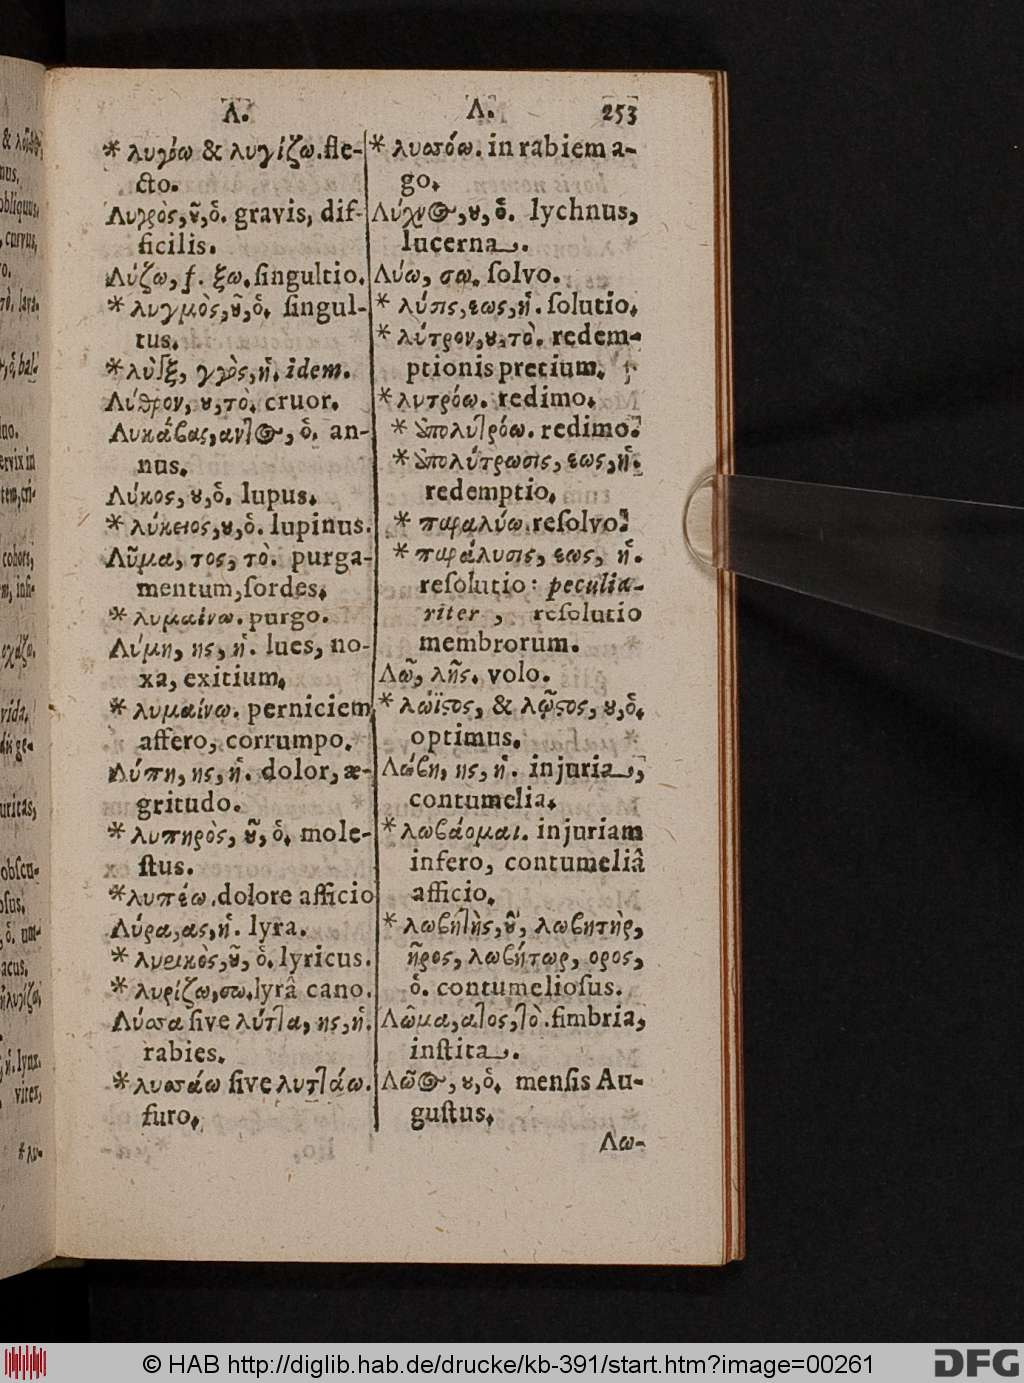 Λ.
* λυγόω & λυγίζω. fle-
cto.
Λυγρὸς, ȣ͂, ὁ. gravis, dif-
ficilis.
Λύζω, f. ξω. singultio.
* λυγμὸς, ȣ͂, ὁ. singul-
tus.
* λὺγξ, γγὸς, ἡ. idem.
Λύθρον, ȣ, τὸ. cruor.
Λυκάβας, αντος, ὁ. an-
nus.
Λύκος, ȣ, ὁ. lupus.
* λύκειος, ȣ, ὁ. lupinus.
Λῦμα, τος, τὸ. purga-
mentum, sordes.
* λυμαίνω. purgo.
Λύμη, ης, ἡ. lues, no-
xa, exitium.
* λυμαίνω. perniciem
affero, corrumpo.
Λύπη, ης, ἡ. dolor, æ-
gritudo.
* λυπηρὸς, ȣ͂, ὁ. mole-
stus.
* λυπέω. dolore afficio
Λύρα, ας, ἡ. lyra.
* λυρικὸς, ȣ͂, ὁ. lyricus.
* λυρίζω, σω. lyrâ cano.
Λύσσα sive λύττα, ης, ἡ.
rabies.
* λυσσάω sive λυττάω.
furo.
Λ.
253
* λυσσόω. in rabiem a-
go.
Λύχνος, ȣ, ὁ. lychnus,
lucerna.
Λύω, σω. solvo.
* λύσις, εως, ἡ. solutio.
* λύτρον, ȣ, τὸ. redem-
ptionis precium.
* λυτρόω. redimo.
* ἀπολυτρόω. redimo.
* ἀπολύτρωσις, εως, ἡ.
redemptio.
* παραλύω. resolvo.
* παράλυσις, εως, ἡ.
resolutio: peculia-
riter, resolutio
membrorum.
Λῶ, λῇς. volo.
* λώϊστος, & λῷστος, ȣ, ὁ.
optimus.
Λώβη, ης, ἡ. injuria,
contumelia.
* λωβάομαι. injuriam
infero, contumeliâ
afficio.
* λωβητὴς, ȣ͂, λωβητὴρ,
ῆρος, λωβήτωρ, ορος,
ὁ. contumeliosus.
Λῶμα, ατος, τὸ. fimbria,
instita.
Λῶος, ȣ, ὁ. mensis Au-
gustus.
Λω-
© HAB http://diglib.hab.de/drucke/kb-391/start.htm?image=00261
DFG